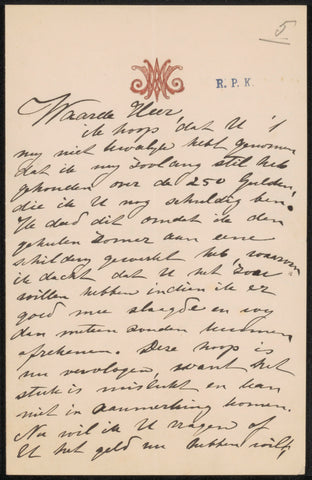 5
R. P. K.
Waarde Heer,
ik hoop dat U 't
my niet kwalyk hebt genomen
dat ik my zoolang stil heb
gehouden over de 250 Gulden,
die ik U nog schuldig ben.
Ik deed dit omdat ik den
geheelen Zomer aan eene
schildery gewerkt heb, waarvan
ik dacht dat U het zou
willen hebben indien ik er
goed mee slaagde en wy
dan meteen zouden kunnen
afrekenen. Deze hoop is
nu vervlogen, want het
stuk is mislukt en kan
niet in aanmerking komen.
Nu wil ik U vragen of
U het geld nu hebben wilt,